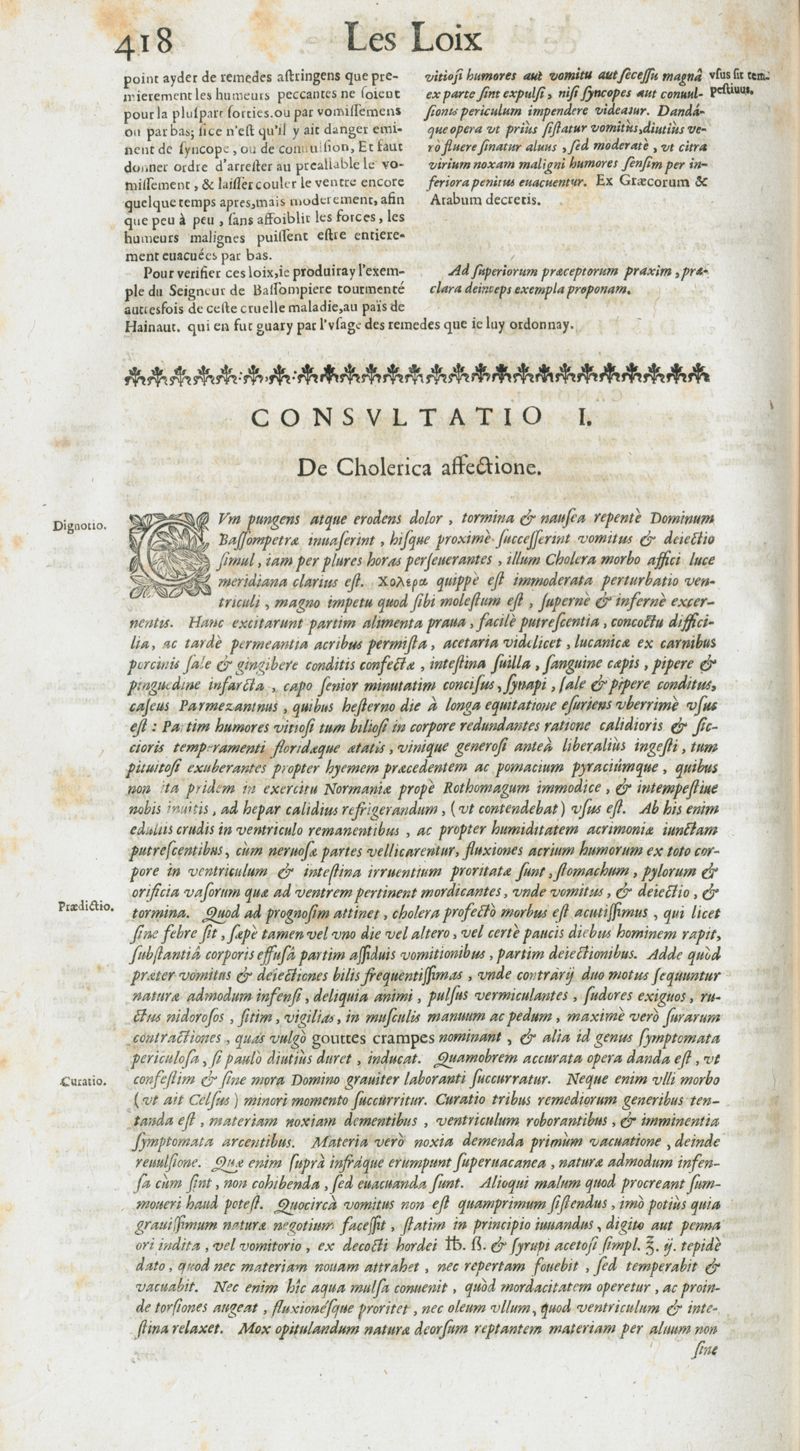 418
Les Loix
point ayder de remedes aſtringens que pre-
mierement les humeurs peccantes ne ſoient
pour la pluſpart ſorties. ou par vomiſſemens
ou par bas; ſi ce n'eſt qu'il y ait danger emi-
nent de ſyncope, ou de conuulſion, Et faut
donner ordre d'arreſter au prealable le vo-
miſſement, & laiſſer couler le ventre encore
quelque temps apres, mais moderement, afin
que peu à peu, ſans affoiblir les forces, les
humeurs malignes puiſſent eſtre entiere-
ment euacuées par bas.
Pour verifier ces loix, ie produiray l'exem-
ple du Seigneur de Baſſompiere tourmenté
autresfois de ceſte cruelle maladie, au païs de
Hainaut. qui en fut guary par l'vſage des remedes que ie luy ordonnay.
vitioſi humores aut vomitu aut ſeceſſu magnâ
ex parte ſint expulſi, niſi ſyncopes aut conuul-
ſionis periculum impendere videatur. Dandá-
que opera vt priùs ſiſtatur vomitus, diutiùs ve-
rò fluere ſinatur aluus, ſed moderatè, vt citra
virium noxam maligni humores ſenſim per in-
feriora penitus euacuentur. Ex Græcorum &
Arabum decretis.
Ad ſuperiorum præceptorum praxim, præ-
clara deinceps exempla proponam.
vſus ſit tem-
peſtiuus.
CONSVLTATIO I.
De Cholerica affectione.
Dignotio.
CVm pungens atque erodens dolor, tormina & nauſea repentè Dominum
Baſſompetræ inuaſerint, hiſque proximè ſucceſſerint vomitus & deiectio
ſimul, iam per plures horas perſeuerantes, illum Cholera morbo affici luce
meridiana clarius eſt. Χολέρα quippè eſt immoderata perturbatio ven-
triculi, magno impetu quod ſibi moleſtum eſt, ſupernè & infernè excer-
nentis. Hanc excitarunt partim alimenta praua, facilè putreſcentia, concoctu diffici-
lia, ac tardè permeantia acribus permiſta, acetaria videlicet, lucanicæ ex carnibus
porcinis ſale & gingibere conditis confectæ, inteſtina ſuilla, ſanguine capis, pipere &
pinguedine infarcta, capo ſenior minutatim conciſus, ſynapi, ſale & pipere conditus,
caſeus Parmezaninus, quibus heſterno die à longa equitatione eſuriens vberrimè vſus
eſt: Partim humores vitioſi tum bilioſi in corpore redundantes ratione calidioris & ſic-
cioris temperamenti floridæque ætatis, vinique generoſi anteà liberaliùs ingeſti, tum
pituitoſi exuberantes propter hyemem præcedentem ac pomacium pyraciúmque, quibus
non ita pridem in exercitu Normaniæ propè Rothomagum immodice, & intempeſtiue
nobis inuitis, ad hepar calidius refrigerandum, (vt contendebat) vſus eſt. Ab his enim
eduliis crudis in ventriculo remanentibus, ac propter humiditatem acrimoniæ iunctam
putreſcentibus, cùm neruoſæ partes vellicarentur, fluxiones acrium humorum ex toto cor-
pore in ventriculum & inteſtina irruentium proritatæ ſunt, ſtomachum, pylorum &
orificia vaſorum quæ ad ventrem pertinent mordicantes, vnde vomitus, & deiectio, &
Prædictio.
tormina. Quod ad prognoſim attinet, cholera profectò morbus eſt acutiſſimus, qui licet
ſine febre ſit, ſæpè tamen vel vno die vel altero, vel certè paucis diebus hominem rapit,
ſubſtantiâ corporis effuſâ partim aſſiduis vomitionibus, partim deiectionibus. Adde quòd
præter vomitus & deiectiones bilis frequentiſſimas, vnde contrarij duo motus ſequuntur
naturæ admodum infenſi, deliquia animi, pulſus vermiculantes, ſudores exiguos, ru-
ctus nidoroſos, ſitim, vigilias, in muſculis manuum ac pedum, maximè verò ſurarum
contractiones, quas vulgò gouttes crampes nominant, & alia id genus ſymptomata
periculoſa, ſi paulò diutiùs duret, inducat. Quamobrem accurata opera danda eſt, vt
Curatio.
confeſtim & ſine mora Domino grauiter laboranti ſuccurratur. Neque enim vlli morbo
(vt ait Celſus) minori momento ſuccurritur. Curatio tribus remediorum generibus ten-
tanda eſt, materiam noxiam dementibus, ventriculum roborantibus, & imminentia
ſymptomata arcentibus. Materia verò noxia demenda primùm vacuatione, deinde
reuulſione. Quæ enim ſuprà infráque erumpunt ſuperuacanea, naturæ admodum infen-
ſa cùm ſint, non cohibenda, ſed euacuanda ſunt. Alioqui malum quod procreant ſum-
moueri haud poteſt. Quocircà vomitus non eſt quamprimum ſiſtendus, imò potiùs quia
grauiſſimum naturæ negotium faceſſit, ſtatim in principio iuuandus, digito aut penna
ori indita, vel vomitorio, ex decocti hordei ℔. ß. & ſyrupi acetoſi ſimpl. ℥. ij. tepidè
dato, quod nec materiam nouam attrahet, nec repertam fouebit, ſed temperabit &
vacuabit. Nec enim hîc aqua mulſa conuenit, quòd mordacitatem operetur, ac proin-
de torſiones augeat, fluxionéſque proritet, nec oleum vllum, quod ventriculum & inte-
ſtina relaxet. Mox opitulandum naturæ deorſum reptantem materiam per aluum non
ſine